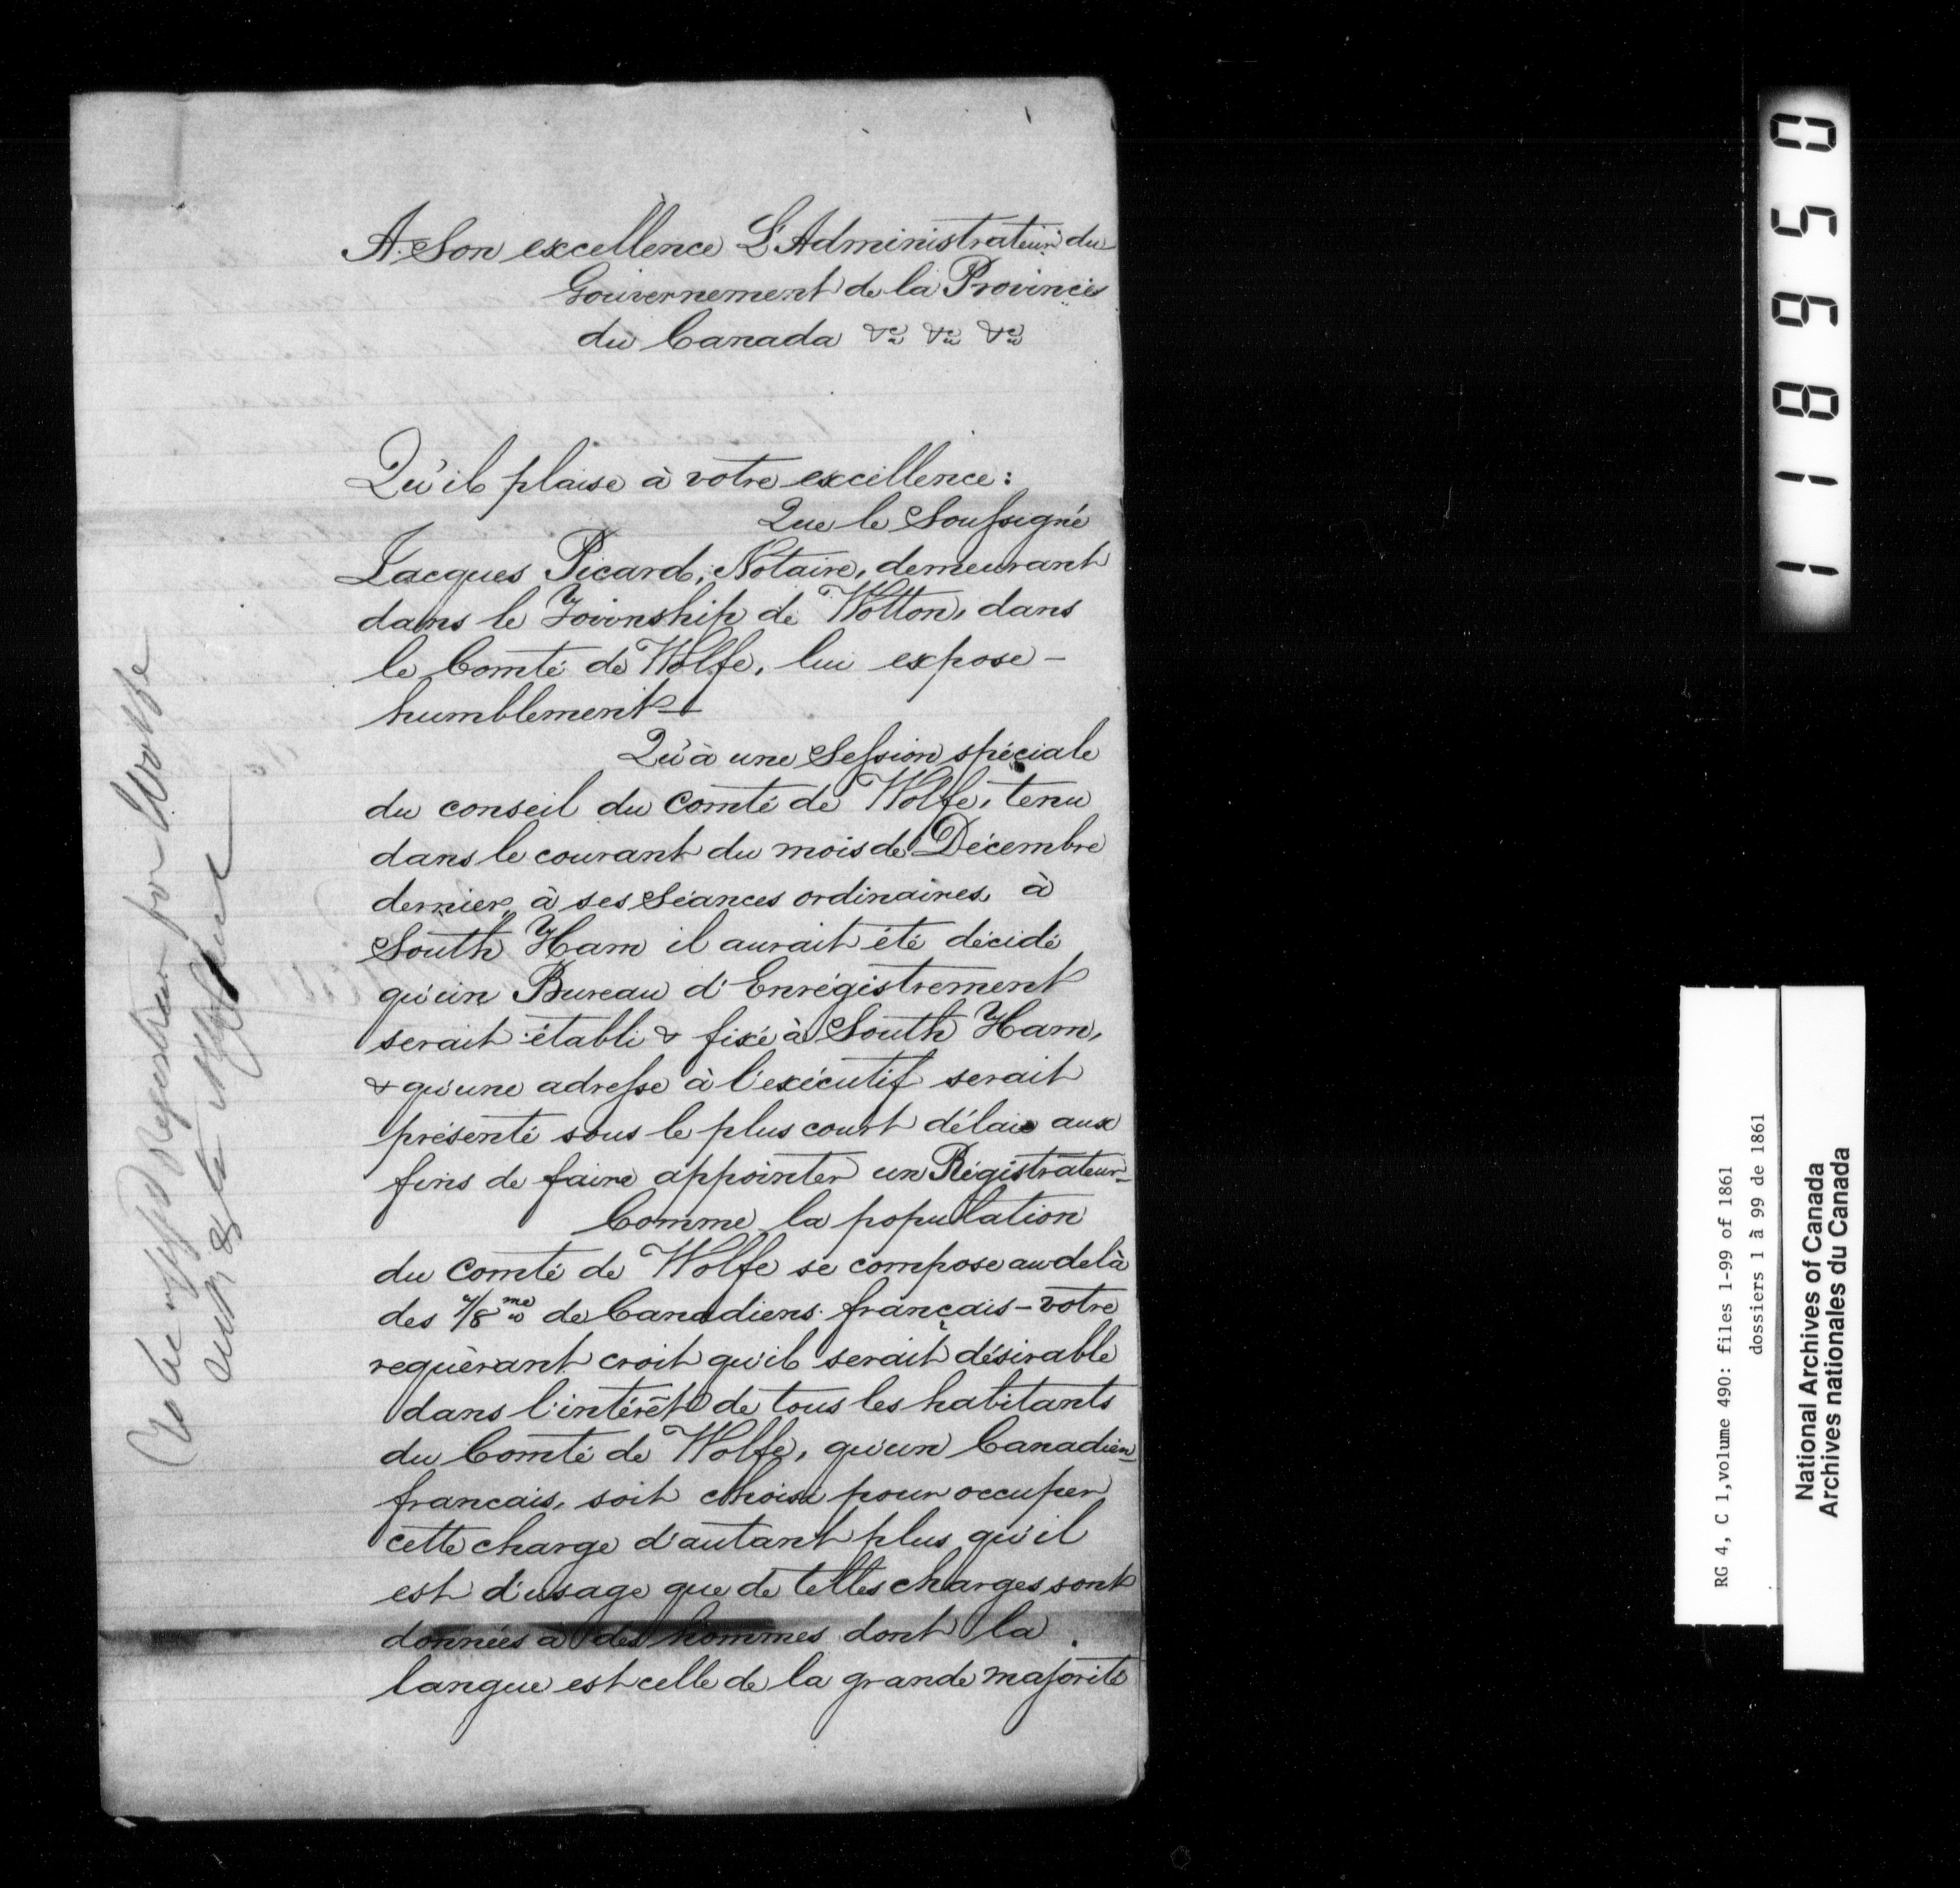 A Son excellence L'Administrateur du
Gouvernement de la Province
du Canada &c &c &c
Qu'il plaise à votre excellence:
Que le Soussigné
Jacques Picard, Notaire, demeurant
dans le Township de Wotton, dans
le Comté de Wolfe, lui expose -
humblement -
Qu'à une Session spéciale
du conseil du Comté de Wolfe, tenu
dans le courant du mois de Décembre
dernier, à ses Séances ordinaires, à
South Ham il aurait été décidé
qu'un Bureau d'Enrégistrement
serait établi & fixé à South Ham,
& qu'une adresse à l'exécutif serait
présenté sous le plus court délai aux
fins de faire appointer un Régistrateur -
Comme la population
du Comté de Wolfe se compose au delà
des 7/8me de Canadiens français - votre
requèrant croit qu'il serait désirable
dans l'intérêt de tous les habitants
du Comté de Wolfe, qu'un Canadien
français, soit choisi pour occuper
cette charge d'autant plus qu'il
est d'usage que de telles charges sont
données à des hommes dont la
langue est celle de la grande majorité
To be Registrar for Wolfe
118950
RG 4, C 1,volume 490: files 1-99 of 1861
dossiers 1 à 99 de 1861
National Archives of Canada
Archives nationales du Canada